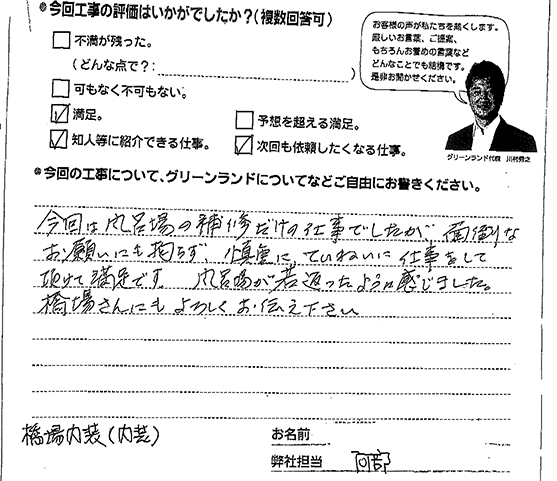 ●今回工事の評価はいかがでしたか？（複数回答可）
不満が残った。
（どんな点で？：　　　）
可もなく不可もない。
満足。
予想を超える満足。
知人等に紹介できる仕事。
次回も依頼したくなる仕事。
お客様の声が私たちを熱くします。
厳しいお言葉、ご提案、
もちろんお誉めの言葉など
どんなことでも結構です。
是非お聞かせください。
グリーンランド代表　川村秀之
●今回の工事について、グリーンランドについてなどご自由にお書きください。
今回は風呂場の補修だけの仕事でしたが 面倒な
お願いにも拘らず、慎重に、ていねいに仕事をして
頂けて満足です。 風呂場が若返ったように感じました。
橋場さんにもよろしくお伝え下さい
橋場内装（内装）
お名前
弊社担当　阿部